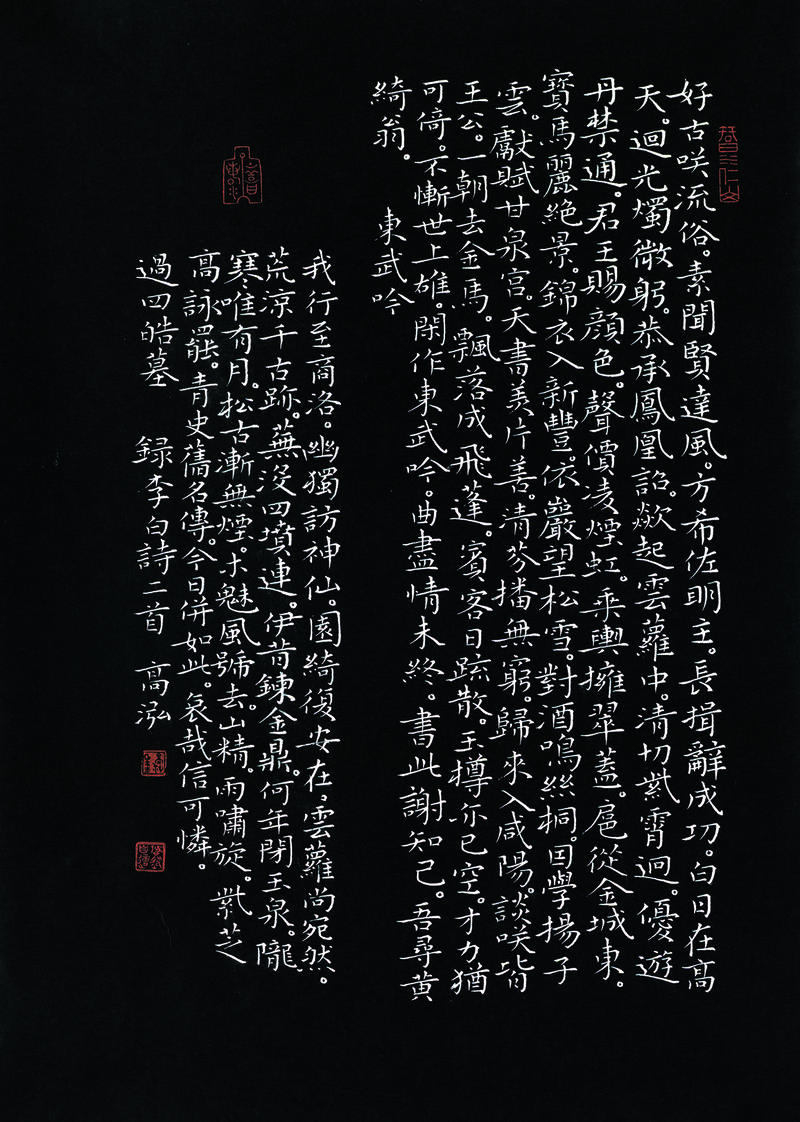 好古咲流俗。素聞賢達風。方希佐明主。長揖辭成功。白日在高
天。迴光燭微躬。恭承鳳凰詔。欻起雲蘿中。清切紫霄迥。優遊
丹禁通。君王賜顏色。聲價凌煙虹。乘輿擁翠蓋。扈從金城東。
寶馬麗絕景。錦衣入新豐。依巖望松雪。對酒鳴絲桐。因學揚子
雲。獻賦甘泉宮。天書美片善。清芬播無窮。歸來入咸陽。談咲皆
王公。一朝去金馬。飄落成飛蓬。賓客日疏散。玉樽亦已空。才力猶
可倚。不慚世上雄。閑作東武吟。曲盡情未終。書此謝知己。吾尋黄
綺翁。 東武吟
我行至商洛。幽獨訪神仙。園綺復安在。雲蘿尚宛然。
荒涼千古跡。蕪没四墳連。伊昔鍊金鼎。何年閉玉泉。隴
寒唯有月。松古漸無煙。木魅風號去。山精雨嘯旋。紫芝
高詠罷。青史舊名傳。今日併如此。哀哉信可憐。
過四皓墓 録李白詩二首 高泓